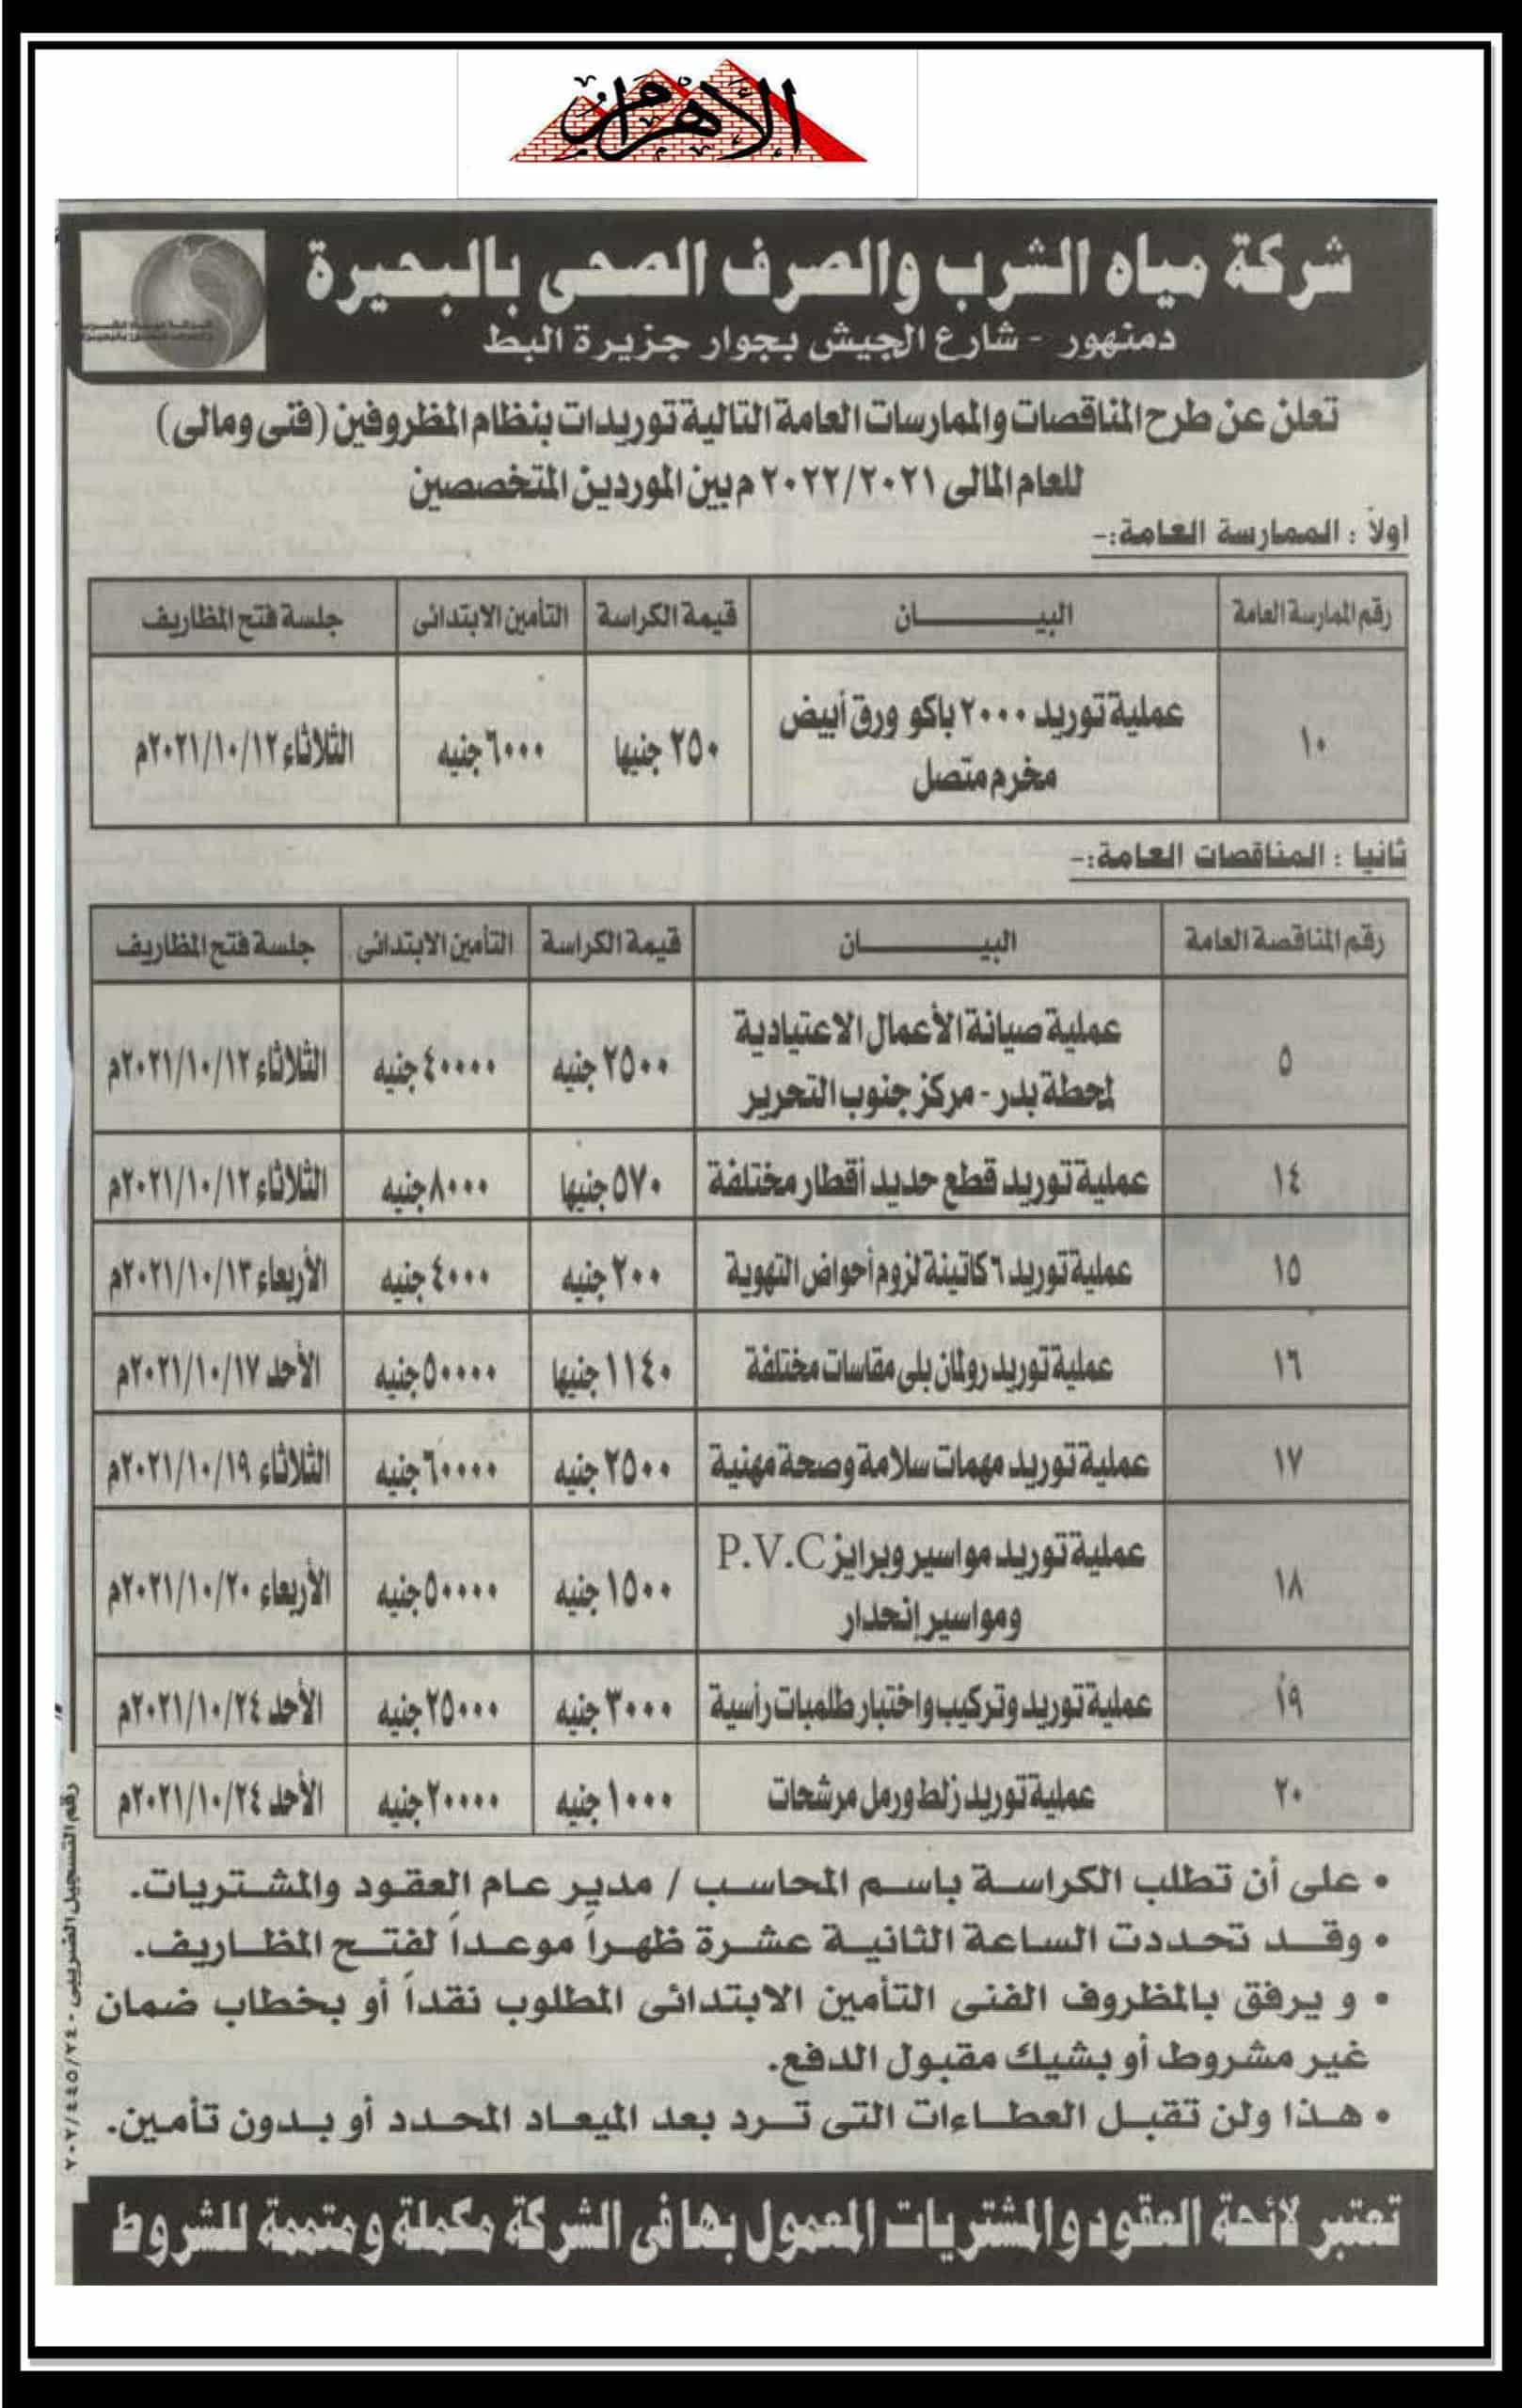 الأهرام
شركة مياه الشرب والصرف الصحى بالبحيرة
دمنهور - شارع الجيش بجوار جزيرة البط
تعلن عن طرح المناقصات والممارسات العامة التالية توريدات بنظام المظروفين (فنى ومالى)
للعام المالى ٢٠٢٢/٢٠٢١ م بين الموردين المتخصصين
أولاً : الممارسة العامة:-
رقم الممارسة العامة البيـــــــان قيمة الكراسة التأمين الابتدائى جلسة فتح المظاريف
١٠ عملية توريد ٢٠٠٠ باكو ورق أبيض ٢٥٠ جنيها ٦٠٠٠ جنيه الثلاثاء ٢٠٢١/١٠/١٢م
مخرم متصل
ثانيا : المناقصات العامة:-
رقم المناقصة العامة البيـــــــان قيمة الكراسة التأمين الابتدائى جلسة فتح المظاريف
٥ عملية صيانة الأعمال الاعتيادية ٢٥٠٠ جنيه ٤٠٠٠٠ جنيه الثلاثاء ٢٠٢١/١٠/١٢م
لمحطة بدر - مركز جنوب التحرير
١٤ عملية توريد قطع حديد أقطار مختلفة ٥٧٠ جنيها ٨٠٠٠ جنيه الثلاثاء ٢٠٢١/١٠/١٢م
١٥ عملية توريد ٦ كاتينة لزوم أحواض التهوية ٢٠٠ جنيه ٤٠٠٠ جنيه الأربعاء ٢٠٢١/١٠/١٣م
١٦ عملية توريد رولمان بلى مقاسات مختلفة ١١٤٠ جنيها ٥٠٠٠٠ جنيه الأحد ٢٠٢١/١٠/١٧م
١٧ عملية توريد مهمات سلامة وصحة مهنية ٢٥٠٠ جنيه ٦٠٠٠٠ جنيه الثلاثاء ٢٠٢١/١٠/١٩م
١٨ عملية توريد مواسير وبرايز P.V.C ١٥٠٠ جنيه ٥٠٠٠٠ جنيه الأربعاء ٢٠٢١/١٠/٢٠م
ومواسير إنحدار
١٩ عملية توريد وتركيب واختبار طلمبات رأسية ٣٠٠٠ جنيه ٢٥٠٠٠ جنيه الأحد ٢٠٢١/١٠/٢٤م
٢٠ عملية توريد زلط ورمل مرشحات ١٠٠٠ جنيه ٢٠٠٠٠ جنيه الأحد ٢٠٢١/١٠/٢٤م
• على أن تطلب الكراسة باسم المحاسب / مدير عام العقود والمشتريات.
• وقد تحددت الساعة الثانية عشرة ظهراً موعداً لفتح المظاريف.
• و يرفق بالمظروف الفنى التأمين الابتدائى المطلوب نقداً أو بخطاب ضمان
غير مشروط أو بشيك مقبول الدفع.
• هذا ولن تقبل العطاءات التى ترد بعد الميعاد المحدد أو بدون تأمين.
رقم التسجيل الضريبى ٢٠٢/٤٤٥/٢٤٠
تعتبر لائحة العقود والمشتريات المعمول بها فى الشركة مكملة ومتممة للشروط